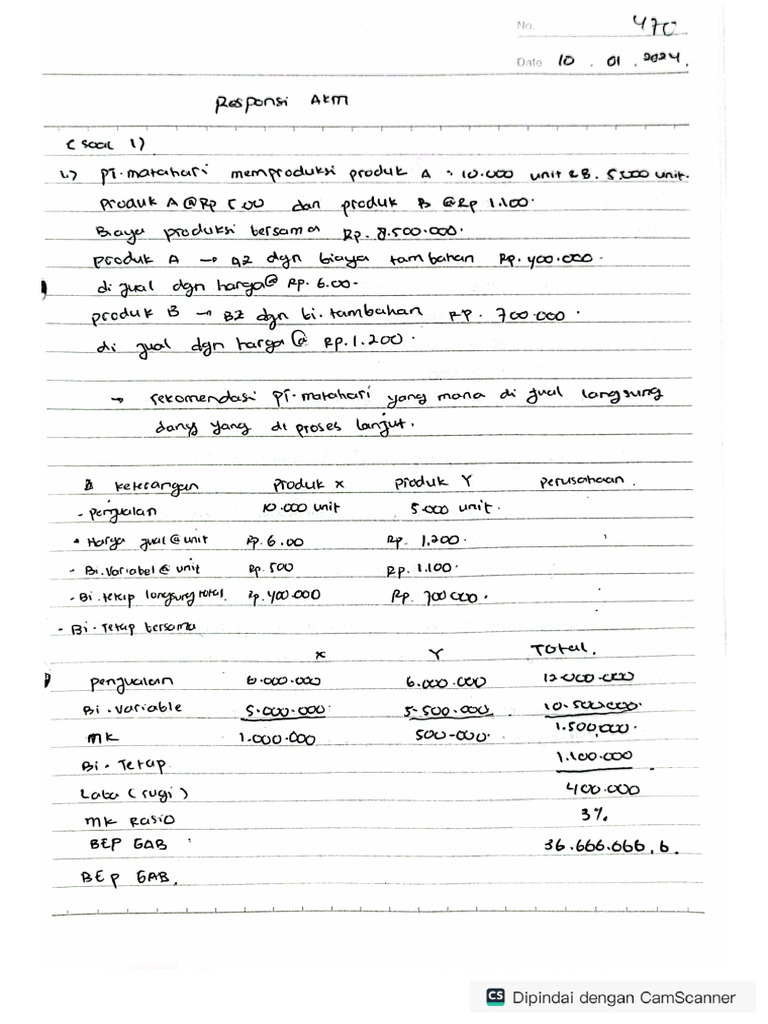 No. 470
Date 10 . 01 . 2024.
Responsi AKM
(Soal 1)
1.) PT. matahari memproduksi produk A = 10.000 unit & B. 5.000 unit.
produk A @Rp 500 dan produk B @Rp 1.100.
Biaya produksi bersama Rp. 8.500.000.
produk A → AZ dgn biaya tambahan Rp. 400.000.
di jual dgn harga@ Rp. 6.00.
produk B → BZ dgn bi. tambahan Rp. 700.000.
di jual dgn harga @ Rp. 1.200.
→ rekomendasi PT. matahari yang mana di jual langsung
dany yang di proses lanjut.
Keterangan Produk X Produk Y perusahaan.
- penjualan 10.000 unit 5.000 unit.
• Harga jual @ unit Rp. 6.00 Rp. 1.200.
- Bi. Variabel @ unit Rp. 500 Rp. 1.100.
- Bi. tetap langsung total. Rp. 400.000 Rp. 700.000.
- Bi. Tetap bersama
X Y TOTAL.
penjualan 6.000.000 6.000.000 12.000.000
Bi. variable 5.000.000 5.500.000 10.500.000.
MK 1.000.000 500.000. 1.500.000.
Bi. Tetap 1.100.000
Laba (rugi) 400.000
MK Rasio 3%
BEP GAB 36.666.666,6.
BEP GAB.
CS Dipindai dengan CamScanner